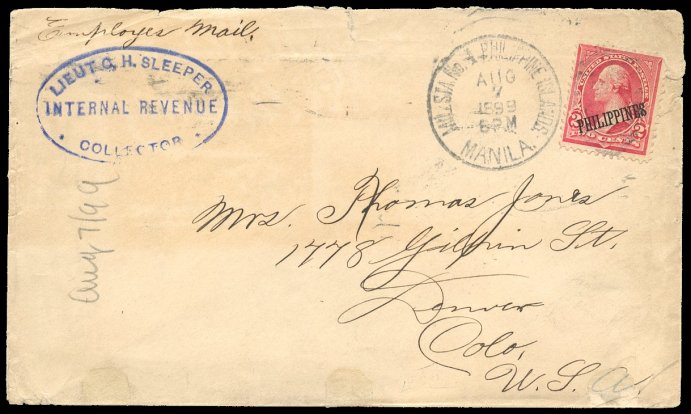 Employes Mail.
LIEUT. C. H. SLEEPER
INTERNAL REVENUE
COLLECTOR
MIL. STA. No. 1, PHILIPPINE ISLANDS.
AUG
7
1899
6 PM
MANILA.
PHILIPPINES
2 CENTS 2
Aug 7/99
Mrs. Thomas Jones
1478 Gilpin St.
Denver
Colo.
U.S.A.